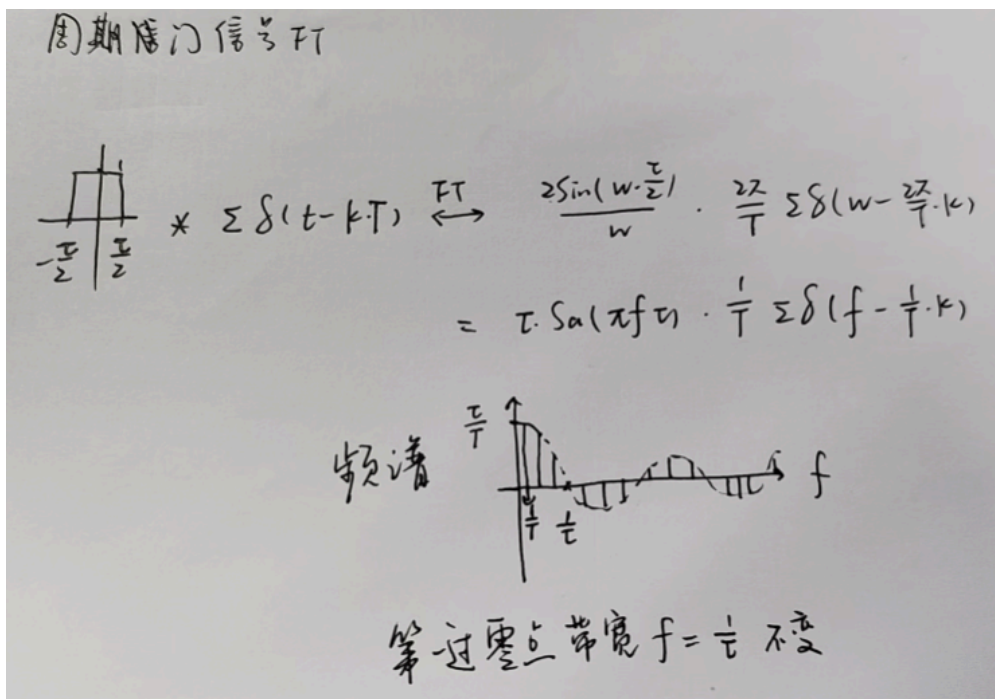 周期门信号FT
-τ/2 τ/2 * Σδ(t-k·T) FT ↔ 2Sin(w·τ/2)/w · 2π/T Σδ(w-2π/T·k)
= τ·Sa(πfτ) · 1/T Σδ(f-1/T·k)
τ/T
频谱 f
1/T 1/τ
第一过零点带宽 f=1/τ 不变